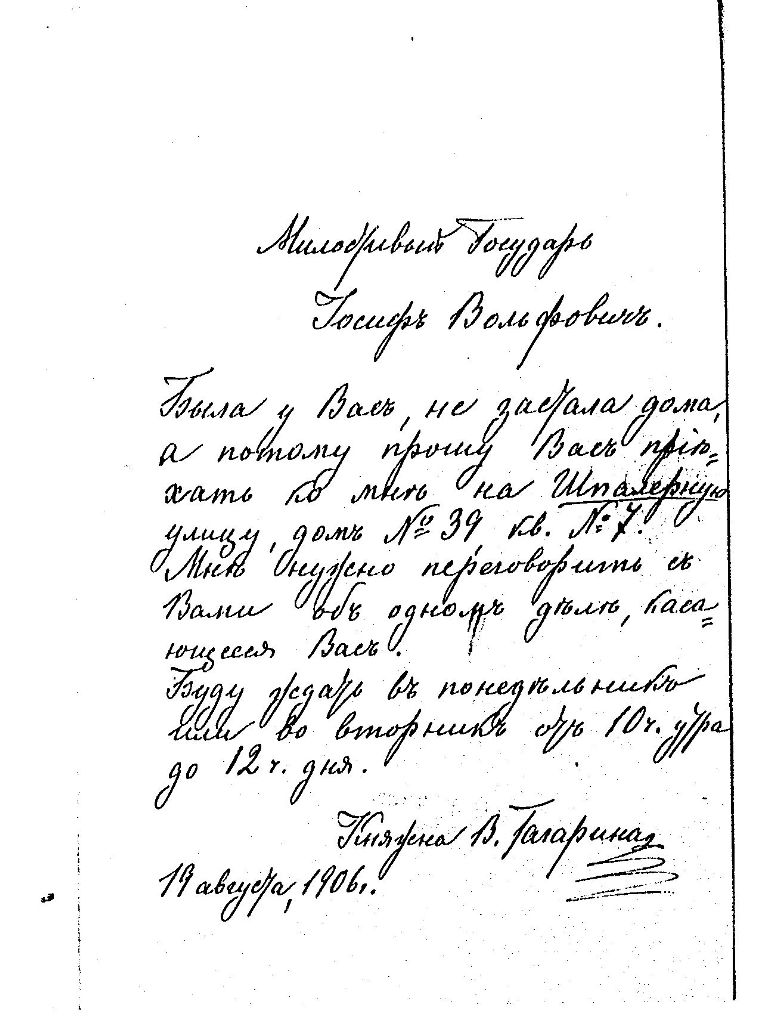 Милостивый Государь
Іосифъ Вольфовичъ.
Была у Васъ, не застала дома,
а потому прошу Васъ пріѣ=
хать ко мнѣ на Шпалерную
улицу, домъ № 39 кв. № 7.
Мнѣ нужно переговорить съ
Вами объ одномъ дѣлѣ, каса=
ющееся Васъ.
Буду ждать въ понедѣльникъ
или во вторникъ отъ 10 ч. утра
до 12 ч. дня.
Княжна В. Гагарина
19 августа, 1906 г.